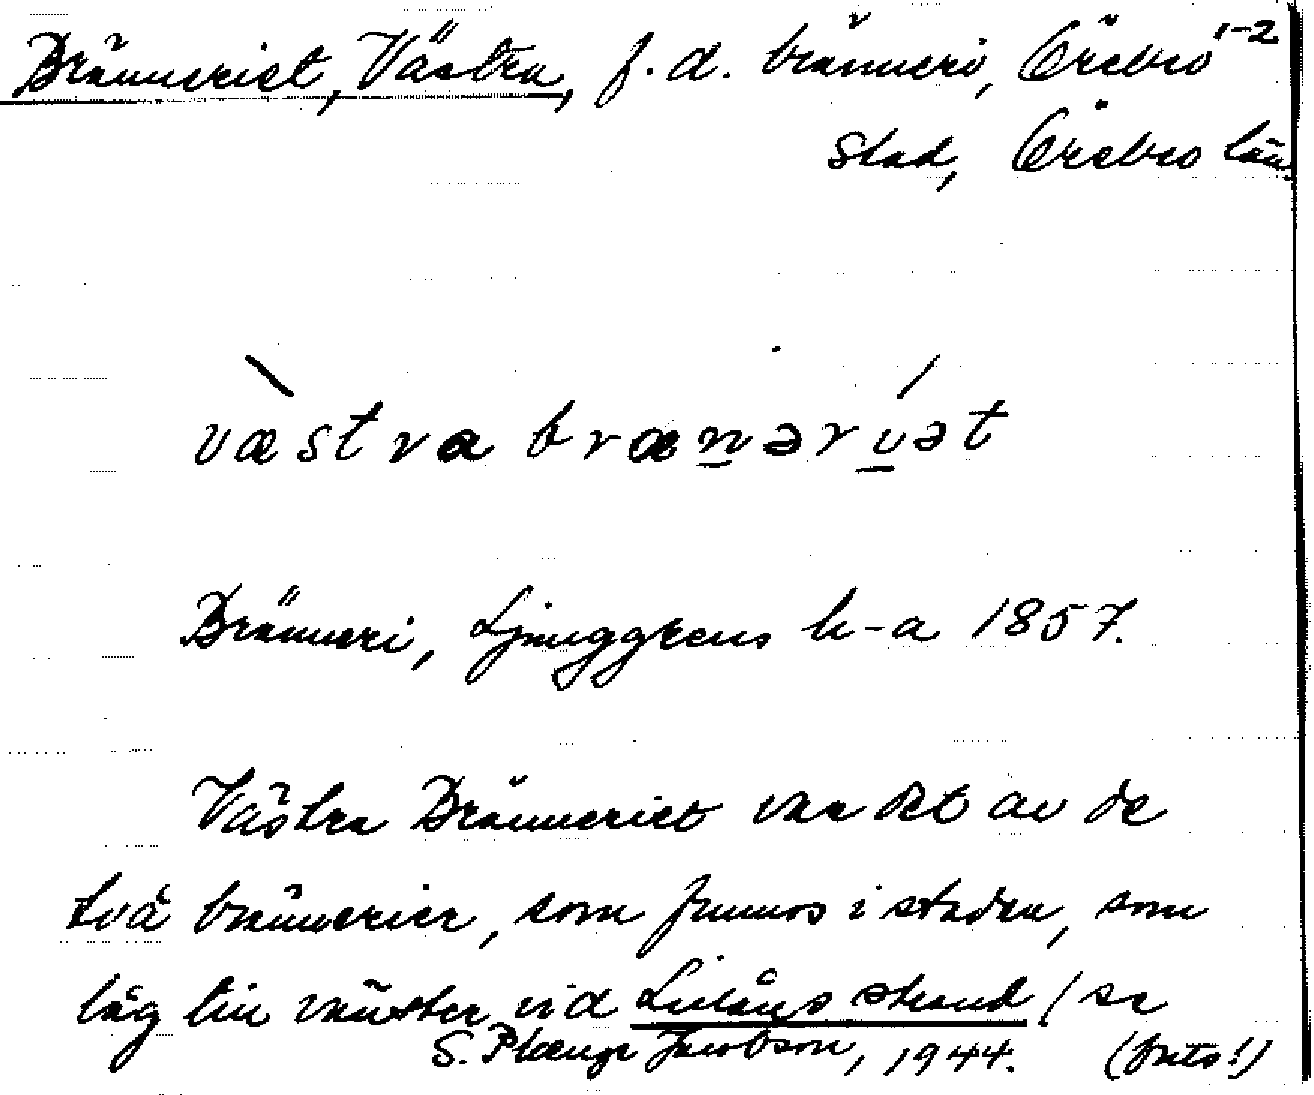 Bränneriet, Västra, f. d. bränneri, Örebro 1-2
stad, Örebro län.
væ̀stra brænəríət
Bränneri, Ljunggrens k-a 1857.
Västra Bränneriet var det av de
två brännerier, som funnos i staden, som
låg till vänster vid Lillåns strand / se
S. Jacobson, 1944. (forts!)